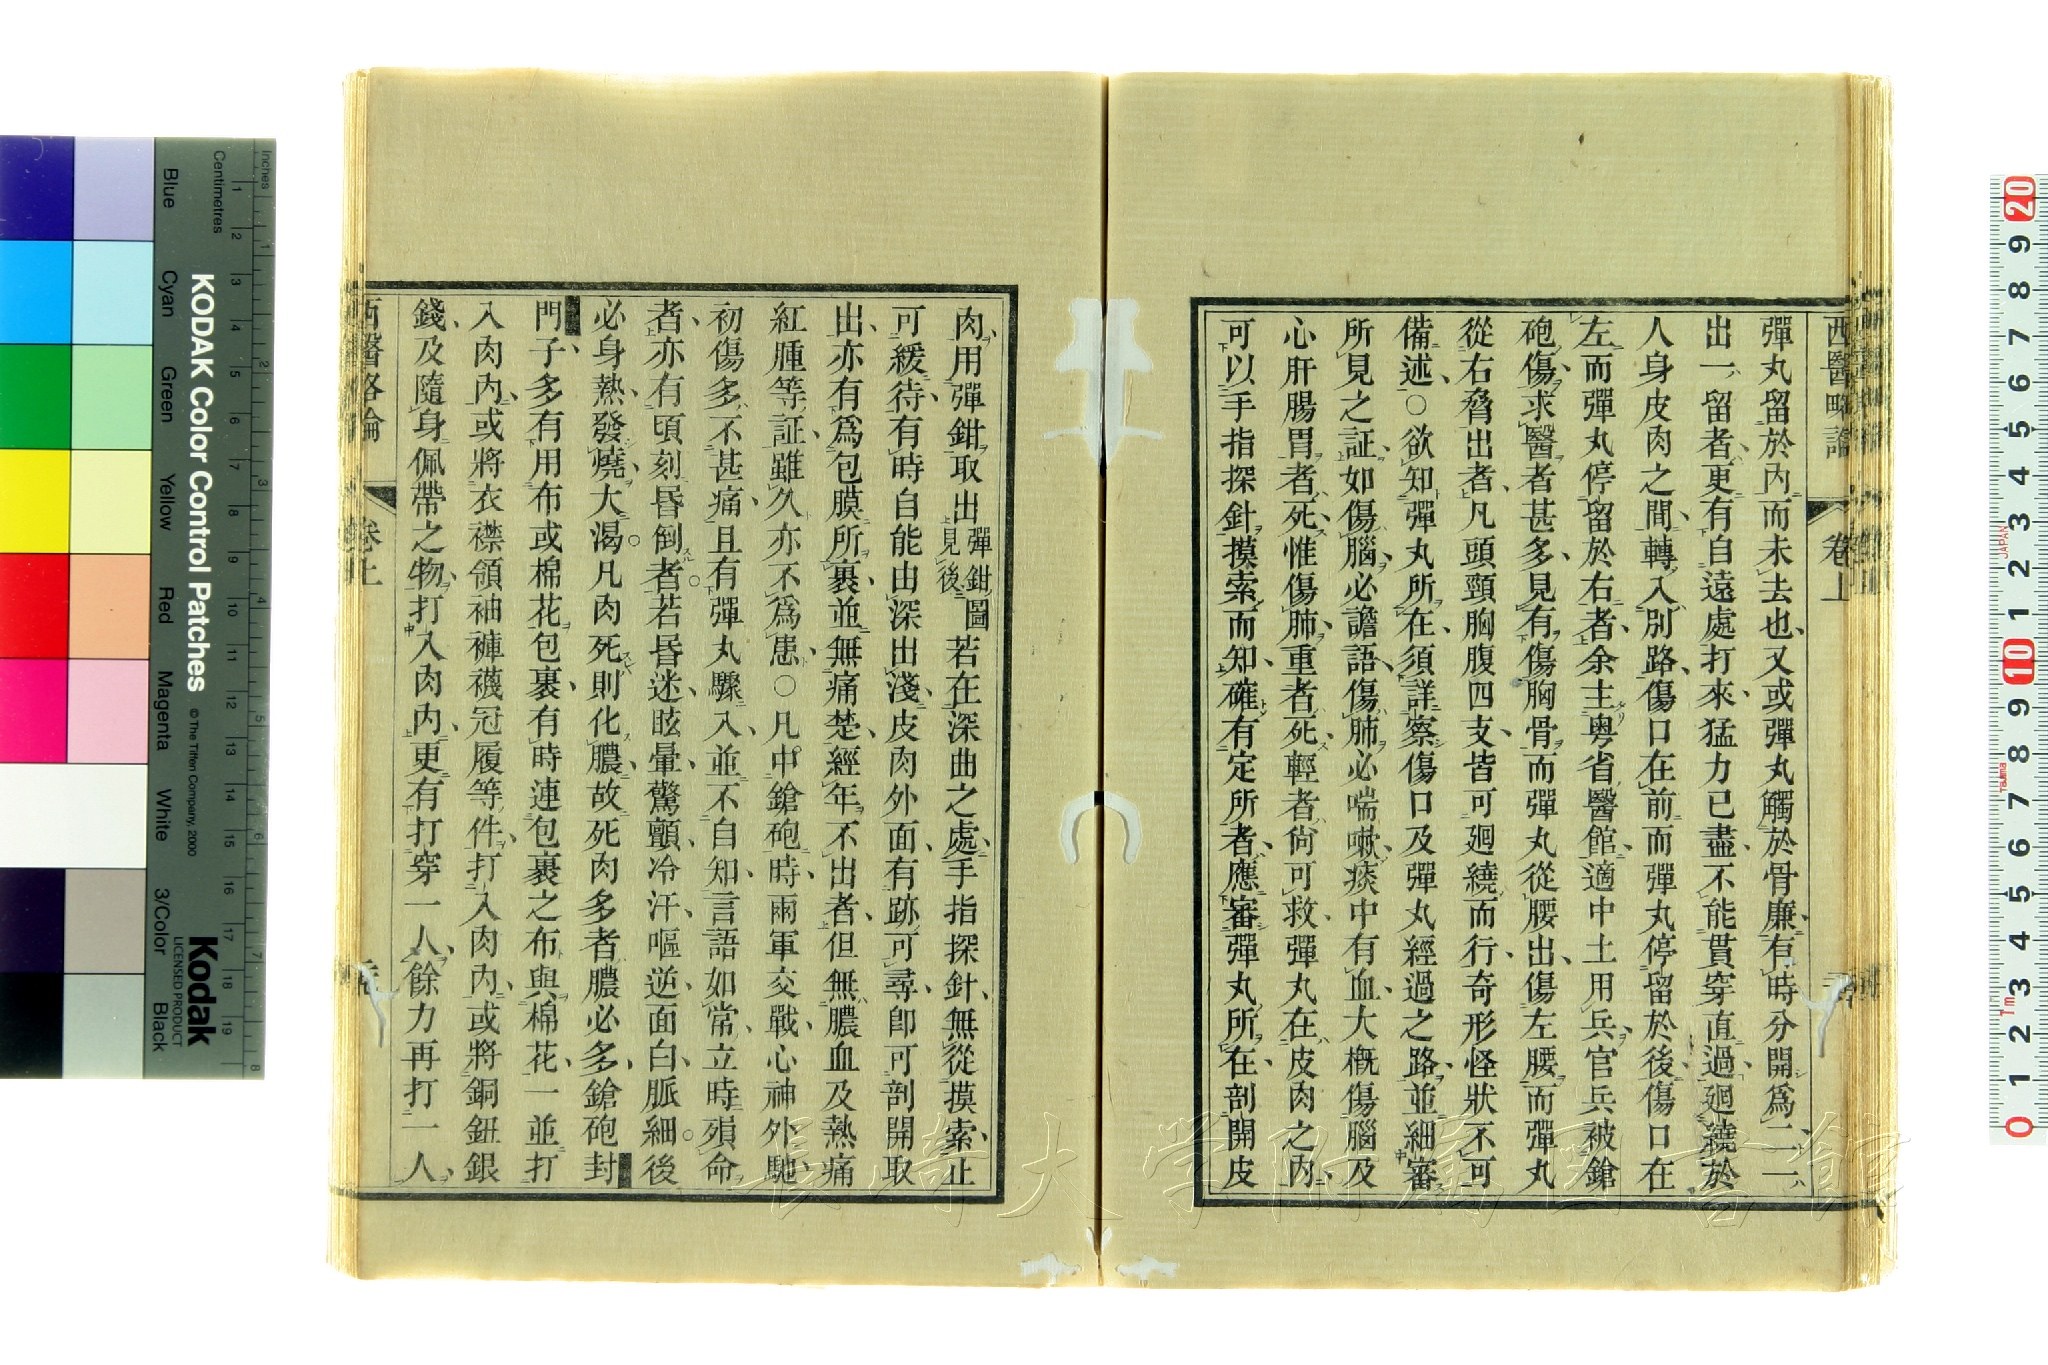 西醫略論 卷上
彈丸留於內而未去也又或彈丸觸於骨廉有時分開爲二一
出一留者更有自遠處打來猛力已盡不能貫穿直過廻繞於
人身皮肉之間轉入別路傷口在前而彈丸停留於後傷口在
左而彈丸停留於右者余主粵省醫館適中土用兵官兵被鎗
砲傷求醫者甚多見有傷胸骨而彈丸從腰出傷左腰而彈丸
從右脅出者凡頭頸胸腹四支皆可廻繞而行奇形怪狀不可
備述○欲知彈丸所在須詳察傷口及彈丸經過之路並細審
所見之証如傷腦必譫語傷肺必喘嗽痰中有血大槪傷腦及
心肝腸胃者死惟傷肺重者死輕者尙可救彈丸在皮肉之內
可以手指探針摸索而知確有定所者應審彈丸所在剖開皮
肉用彈鉗取出彈鉗圖見後若在深曲之處手指探針無從摸索止
可緩待有時自能由深出淺皮肉外面有跡可尋卽可剖開取
出亦有爲包膜所裹並無痛楚經年不出者但無膿血及熱痛
紅腫等証雖久亦不爲患○凡中鎗砲時兩軍交戰心神外馳
初傷多不甚痛且有彈丸驟入並不自知言語如常立時殞命
者亦有頃刻昏倒者若昏迷眩暈驚顫冷汗嘔逆面白脈細後
必身熱發燒大渴凡肉死則化膿故死肉多者膿必多鎗砲封
門子多有用布或棉花包裹有時連包裹之布與棉花一並打
入肉內或將衣襟領袖褲襪冠履等件打入肉內或將銅鈕銀
錢及隨身佩帶之物打入肉內更有打穿一人餘力再打一人
西醫略論 卷上
KODAK Color Control Patches
© The Tiffen Company, 2000
Kodak
LICENSED PRODUCT
Inches
Centimetres
Blue
Cyan
Green
Yellow
Red
Magenta
White
3/Color
Black
長崎大学附属図書館